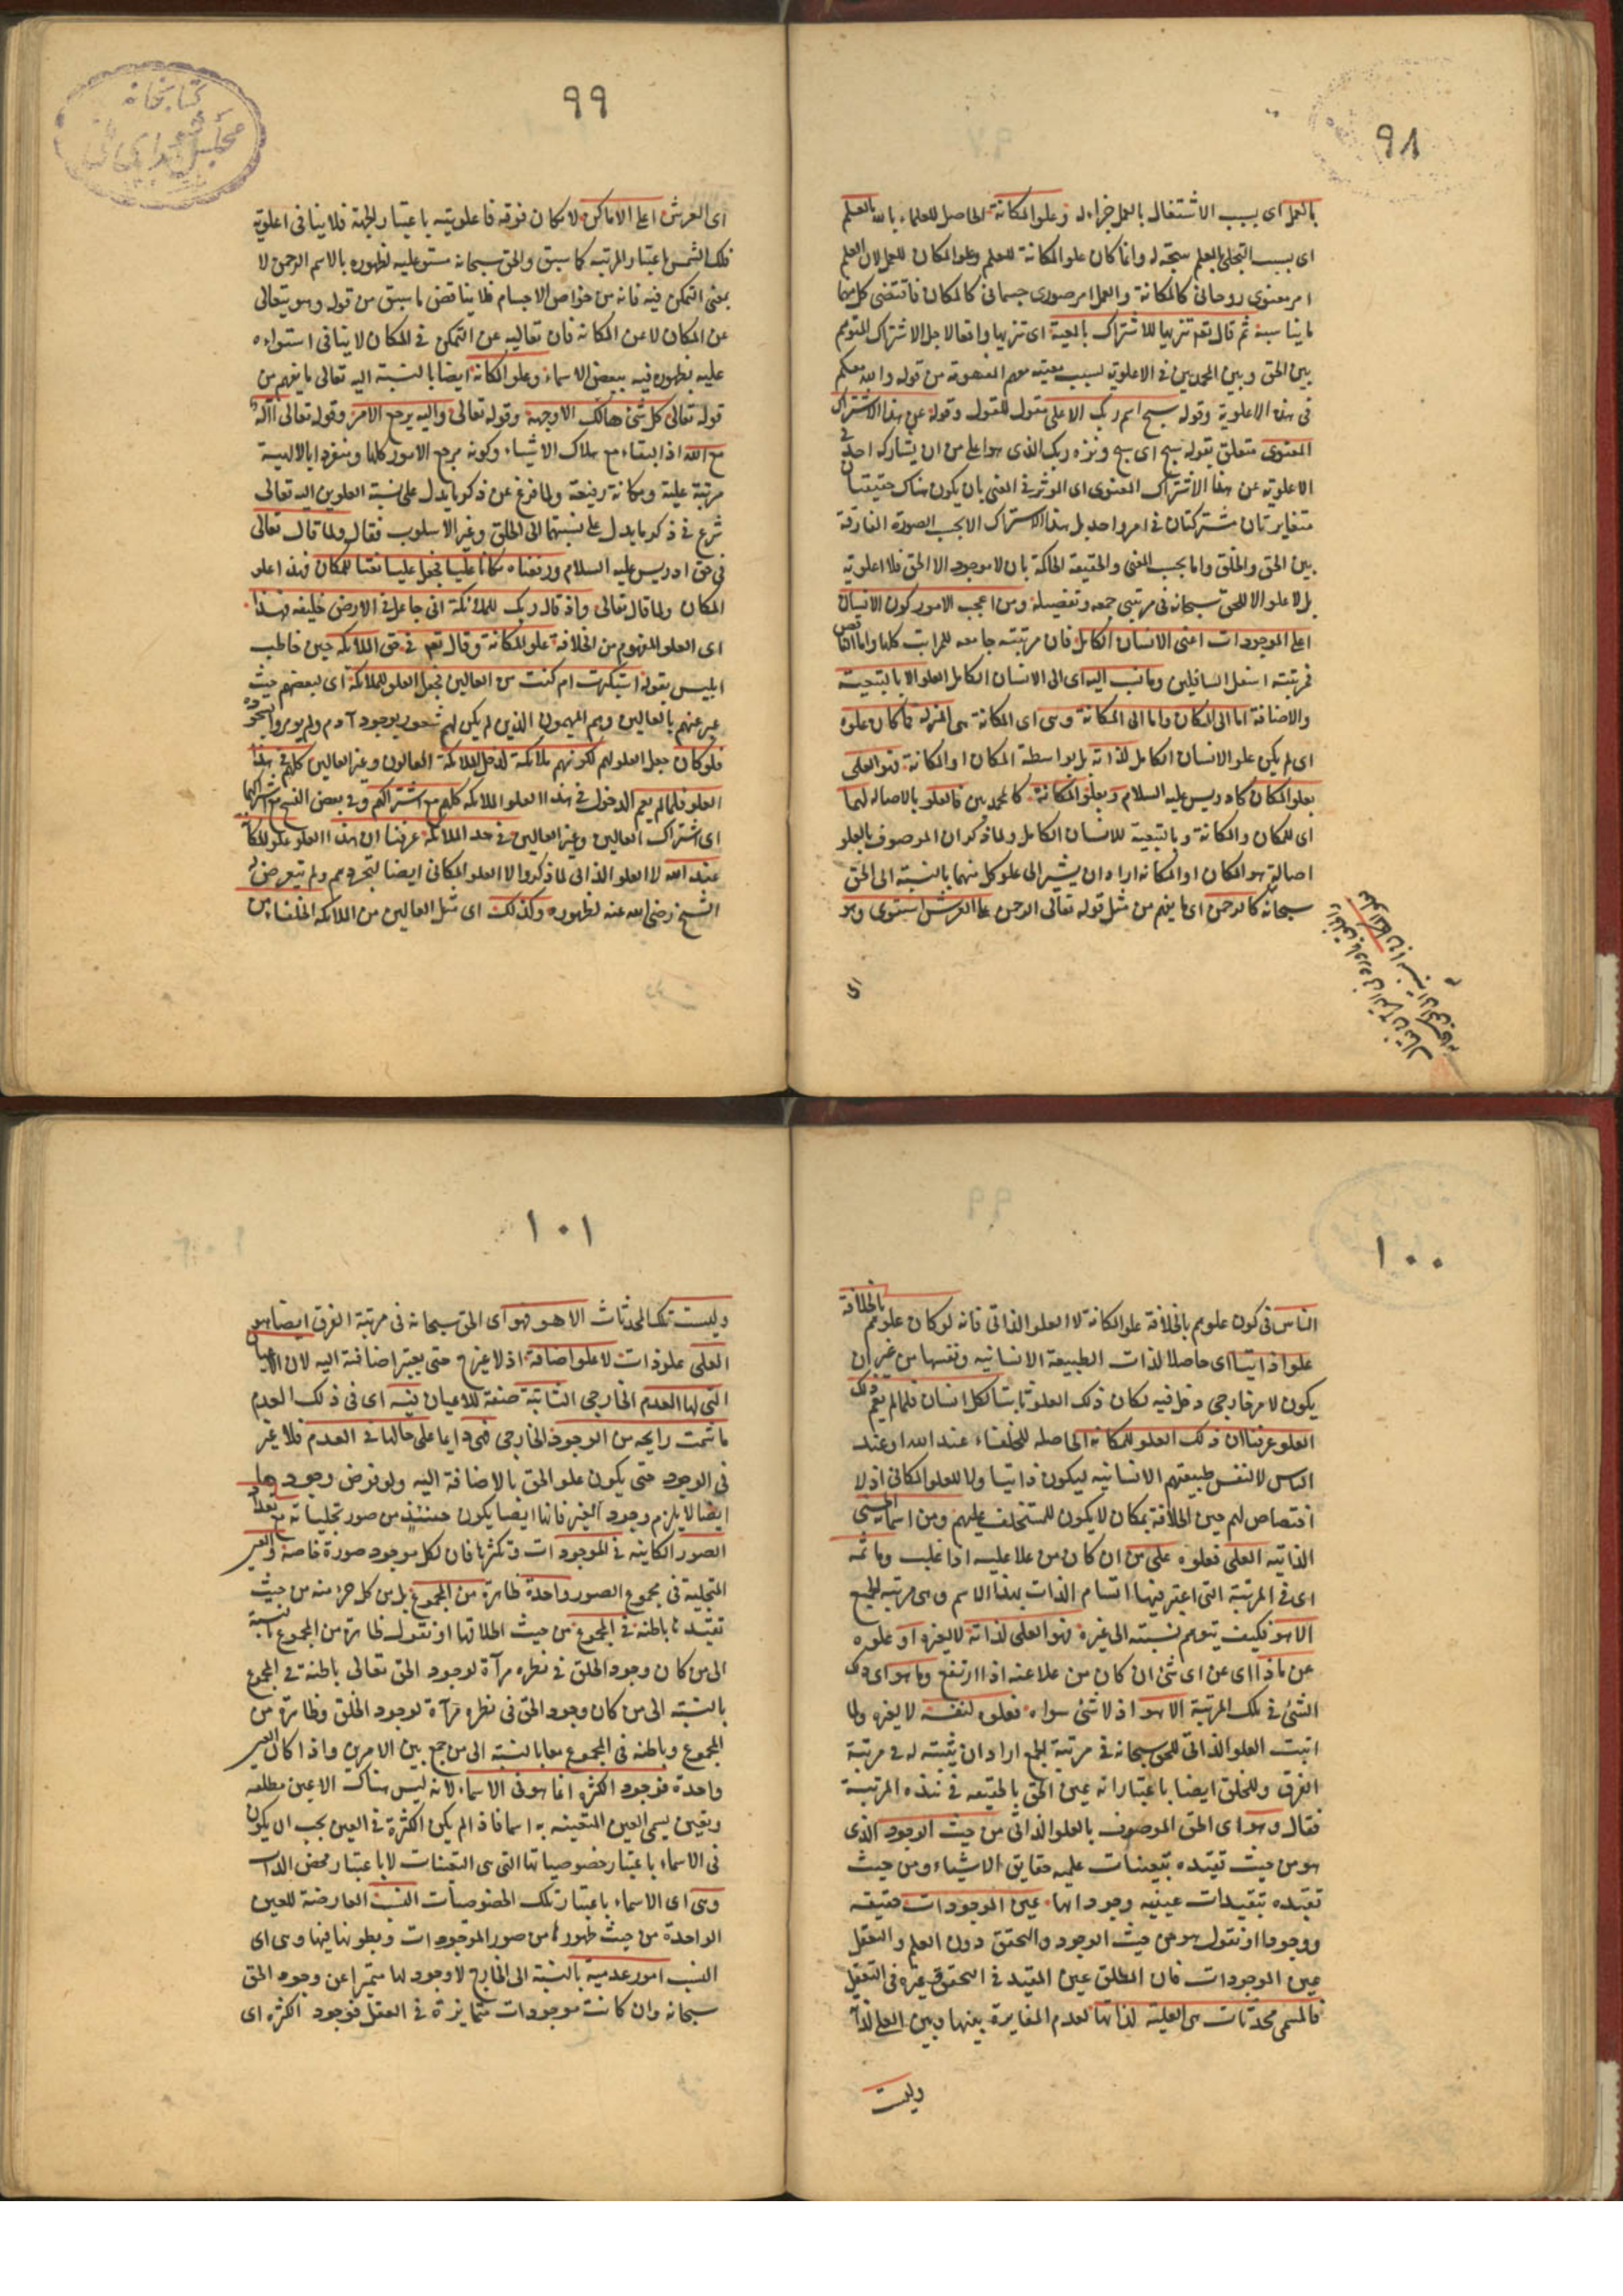 ٩٨
بالعمل اى بسبب الاشتغال بالعمل جزاء له وعلو المكانة الحاصل للعلماء بالله بالعلم
اى بسبب التجلى بالعلم نتيجة له وانما كان علو المكانة للعلم وعلو المكان للعمل لان العلم
امر معنوى روحانى كالمكانة والعمل امر صورى جسمانى كالمكان فاقتضى كل منهما
ما يناسبه ثم قال تعم تنزيها للاشتراك بالمعية اى تنزيها واقعا لاجل الاشتراك المتوهم
بين الحق وبين المحمديين فى الاعلوية بسبب معيته معهم المفهومة من قوله والله معكم
فى هذه الاعلوية وقوله سبح اسم ربك الاعلى مقول للقول وقوله عن هذا الاشتراك
المعنوى متعلق بقوله سبح اى سبح ونزه ربك الذى هو اعلى من ان يشاركه احد فى
الاعلوية عن هذا الاشتراك المعنوى اى المؤثر فى المعنى بان يكون هناك حقيقتان
متغايرتان مشتركتان فى امر واحد بل هذا الاشتراك الا بحسب الصورة الفارقة
بين الحق والخلق واما بحسب المعنى والحقيقة الحاكمة بان لا موجود الا الحق فلا اعلوية
بل لا علو الا للحق سبحانه فى مرتبتى جمعه وتفصيله ومن اعجب الامور كون الانسان
اعلى الموجودات اعنى الانسان الكامل فان مرتبته جامعه للمراتب كلها واما الناقص
فمرتبته اسفل السافلين وما نسب اليه اى الى الانسان الكامل العلو الا بالتبعية
والاضافة اما الى المكان واما الى المكانة وهى اى المكانة هى المنزلة فما كان علوه
اى لم يكن علو الانسان الكامل لذاته بل بواسطة المكان او المكانة فهو العلى
بعلو المكان كادريس عليه السلام وبعلو المكانة كالمحمديين فالعلو بالاصالة لهما
اى للمكان والمكانة وبالتبعية للانسان الكامل ولما ذكر ان الموصوف بالعلو
اصالة هو المكان او المكانة اراد ان يشير الى علو كل منهما بالنسبة الى الحق
سبحانه كالرحمن اى ما يفهم من مثل قوله تعالى الرحمن على العرش استوى وهو
اى
٩٩
كتابخانه
مجلس شوراى ملى
اى العرش اعلى الاماكن لا مكان فوقه فاعلويته باعتبار الجهة فلا ينافى اعلوية
فلك الشمس باعتبار المرتبه كما سبق والحق سبحانه مستو عليه لظهوره بالاسم الرحمن لا
بمعنى التمكن فيه فانه من خواص الاجسام فلا يناقض ما سبق من قوله وهو يتعالى
عن المكان لا عن المكانة فان تعاليه عن التمكن فى المكان لا ينافى استواءه
عليه بظهوره فيه ببعض الاسماء وعلو المكانة ايضا بالنسبة اليه تعالى ما يفهم من
قوله تعالى كل شئ هالك الا وجهه وقوله تعالى واليه يرجع الامر وقوله تعالى أاله
مع الله اذ البقاء مع هلاك الاشياء وكونه مرجع الامور كلها ومنفردا بالالهية
مرتبة علية ومكانة رفيعة ولما فرغ عن ذكر ما يدل على نسبة العلوين اليه تعالى
شرع فى ذكر ما يدل على نسبتهما الى الخلق وغير الاسلوب فقال ولما قال تعالى
فى حق ادريس عليه السلام ورفعناه مكانا عليا فجعل عليا نعتا للمكان فهذا علو
المكان ولما قال تعالى واذ قال ربك للملائكة انى جاعل فى الارض خليفه فهذا
اى العلو المفهوم من الخلافة علو المكانة وقال تعم فى حق الملائكه حين خاطب
ابليس بقوله استكبرت ام كنت من العالين فجعل العلو للملائكة اى لبعضهم حيث
عبر عنهم بالعالين وهم المهيمون الذين لم يكن لهم شعور بوجود آدم ولم يؤمروا بسجوده
فلو كان جعل العلو لهم لكونهم ملائكة لدخل الملائكة العالون وغير العالين كلهم فى هذا
العلو فلما لم يعم الدخول فى هذا العلو الملائكه كلهم مع اشتراكهم وفى بعض النسخ مع اشتراكهما
اى اشتراك العالين وغير العالين فى حد الملائكة عرفنا ان هذا العلو علو المكانة
عند الله لا العلو الذاتى لما ذكر ولا العلو المكانى ايضا لتجردهم ولم يتعرض له
الشيخ رضى الله عنه لظهوره وكذلك اى مثل العالين من الملائكة الخلفاء من
١٠٠
الناس فى كون علوهم بالخلافة علو المكانة لا العلو الذاتى فانه لو كان علوهم بالخلافة
علوا ذاتيا اى حاصلا لذات الطبيعة الانسانيه ونفسها من غير ان
يكون لامر خارجى دخل فيه لكان ذلك العلو ثابتا لكل انسان فلما لم يعم ذلك
العلو عرفنا ان ذلك العلو للمكانة الحاصلة للخلفاء عند الله او عند
الناس لا لنفس طبيعتهم الانسانيه ليكون ذاتيا ولا للعلو المكانى اذ لا
اختصاص لهم حين الخلافة بمكان لا يكون للمستخلف عليهم ومن اسمائه الحسنى
الذاتيه العلى فعلوه على من ان كان من علا عليه اذا غلب وما ثمه
اى فى المرتبة التى اعتبر فيها اتسام الذات بهذا الاسم وهى مرتبة الجمع
الا هو فكيف يتوهم نسبته الى غيره فهو العلى لذاته لا لغيره او علوه
عن ماذا اى عن اى شئ ان كان من علا عنه اذا ارتفع وما هو اى ذلك
الشئ فى تلك المرتبة الا هو اذ لا شئ سواه فعلوه لنفسه لا لغيره ولما
اثبت العلو الذاتى للحق سبحانه فى مرتبة الجمع اراد ان يثبته له فى مرتبة
الفرق وللخلق ايضا باعتبار انه عين الحق بالحقيقه فى هذه المرتبة
فقال وهو اى الحق الموصوف بالعلو الذاتى من حيث الوجود الذى
هو من حيث تقيده بتعينات علميه حقايق الاشياء ومن حيث
تقيده بتقيدات عينيه وجوداتها عين الموجودات حقيقه
ووجودا او نقول هو من حيث الوجود والتحقق دون العلم والتعقل
عين الموجودات فان المطلق عين المقيد فى التحقق غيره فى التعقل
فالمسمى محدثات هى العلية لذاتها لعدم المغايرة بينها وبين العلى لذاته
وليست
١٠١
وليست تلك المحدثات الا هو فهو اى الحق سبحانه فى مرتبة الفرق ايضا هو
العلى علو ذات لا علو اضافة اذ لا غير ح حتى يعتبر اضافته اليه لان الاعيان
التى لها العدم الخارجى الثابتة صفة للاعيان فيه اى فى ذلك العدم
ما شمت رايحه من الوجود الخارجى فهى دايما على حالها فى العدم فلا غير
فى الوجود حتى يكون علو الحق بالاضافة اليه ولو فرض وجودها
ايضا لا يلزم وجود الغير فانها ايضا يكون حينئذ من صور تجلياته مع تعداد
الصور الكاينه فى الموجودات وتكثرها فان لكل موجود صورة خاصة والعين
المتجلية فى مجموع الصور واحدة ظاهرة من المجموع بل من كل جزء منه من حيث
تقيدها باطنة فى المجموع من حيث اطلاقها او نقول ظاهرة من المجموع بالنسبة
الى من كان وجود الخلق فى نظره مرآة لوجود الحق تعالى باطنة فى المجموع
بالنسبة الى من كان وجود الحق فى نظره مرآة لوجود الخلق وظاهرة من
المجموع وباطنه فى المجموع معا بالنسبه الى من جمع بين الامرين واذا كان العين
واحدة فوجود الكثرة انما هو فى الاسماء لانه ليس هناك الا عين مطلقه
وتعين يسمى العين المتعينه به اسما فاذ لم يكن الكثرة فى العين يجب ان يكون
فى الاسماء باعتبار خصوصياتها التى هى التعينات لا باعتبار محض الذات
وهى اى الاسماء باعتبار تلك الخصوصيات النسب العارضة للعين
الواحدة من حيث ظهورها من صور الموجودات وبطونها فيها وهى اى
النسب امور عدمية بالنسبة الى الخارج لا وجود لها متميزا عن وجود الحق
سبحانه وان كانت موجودات متمايزة فى العقل فوجود الكثره اى